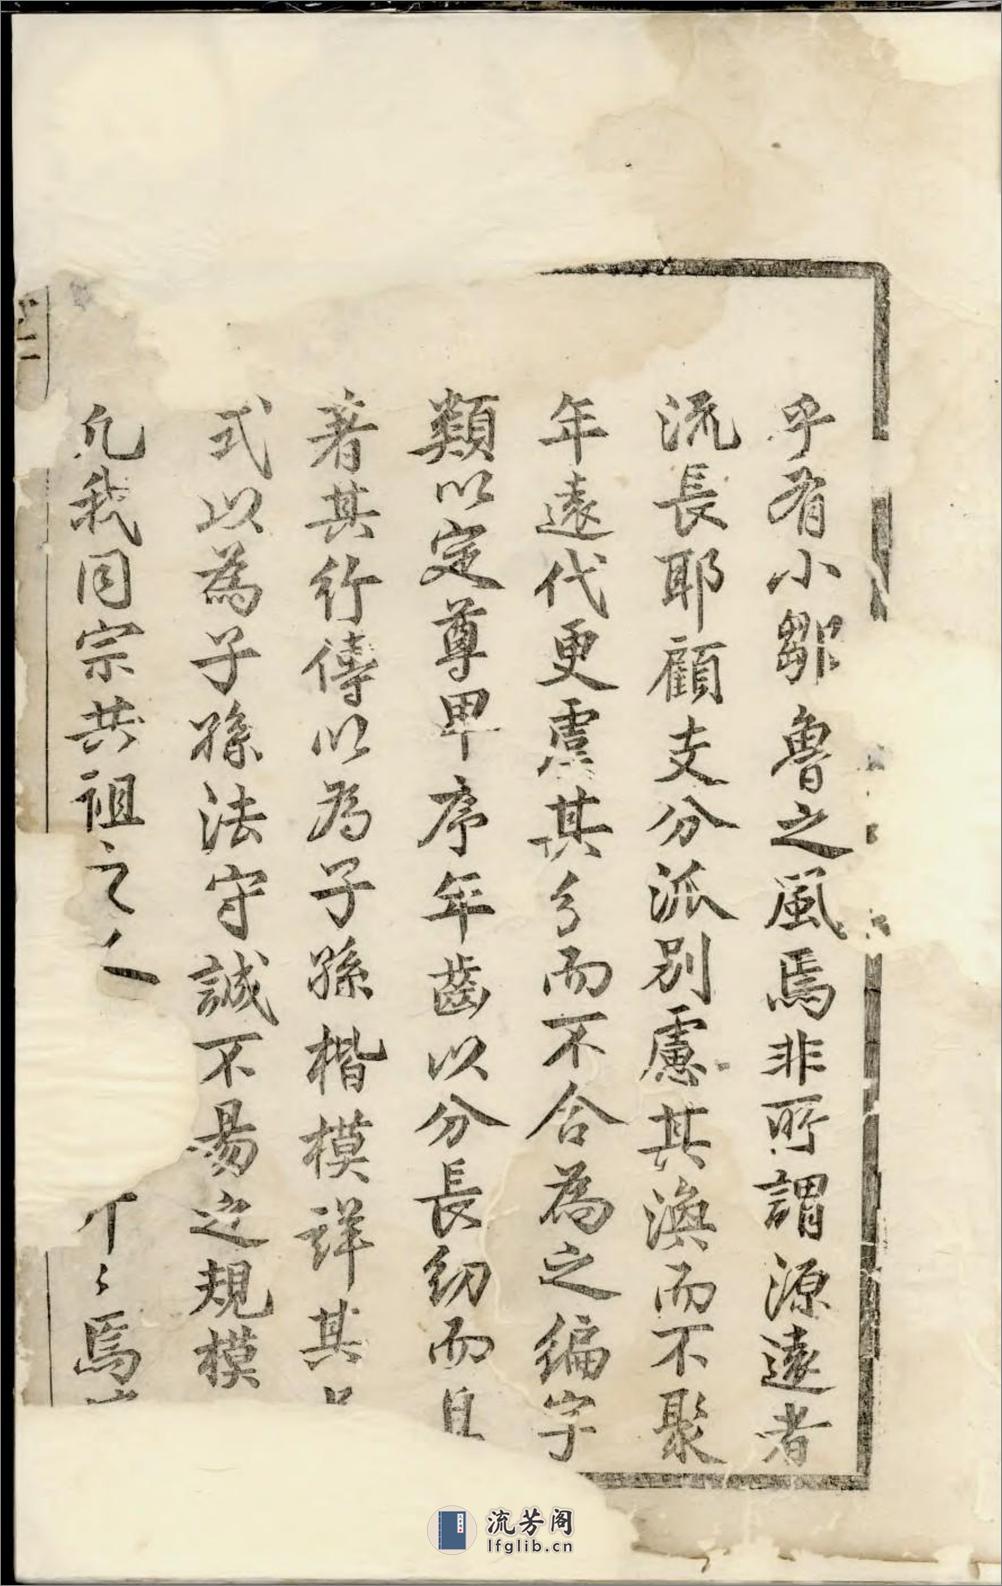 乎有小鄒魯之風焉非所謂源遠者
流長耶顧支分派別慮其渙而不聚
年遠代更慮其分而不合為之編字
類以定尊卑序年齒以分長幼而且
著其行傳以為子孫楷模詳其
式以為子孫法守誠不易之規模
凡我同宗共祖之人
焉
流芳阁
lfglib.cn